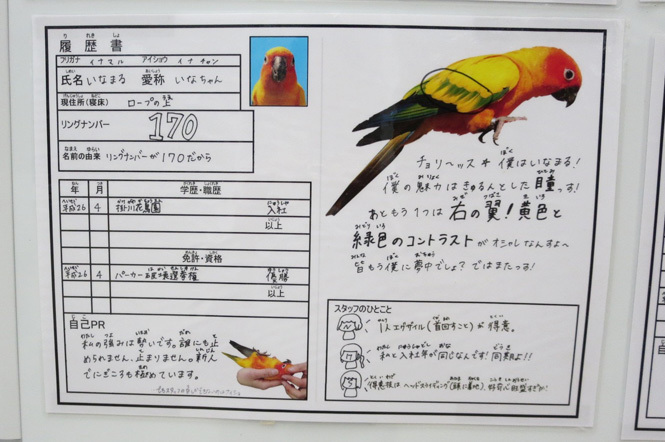 履歴書
フリガナ イナマル アイショウ イナチャン
氏名 いなまる 愛称 いなちゃん
現住所(寝床) ロープの上
リングナンバー 170
名前の由来 リングナンバーが170だから
年 月 学歴・職歴
平成26 4 掛川花鳥園 入社
以上
免許・資格
平成26 4 優勝
以上
自己PR
私の強みは勢いです。誰にも止
められません、止まりません。新人
でにぎころも極めています。
チョリヘッス 僕はいなまる!
僕の魅力はきゅるんとした瞳っす!
あともう1つは右の翼!黄色と
緑色のコントラストがオシャレなんすよ〜
皆もう僕に夢中でしょ?ではまたっす!
スタッフのひとこと
1人エグザイル(首回すこと)が得意。
私と入社年が同じなんです!同期よ!!
得意技はヘッドスライディング